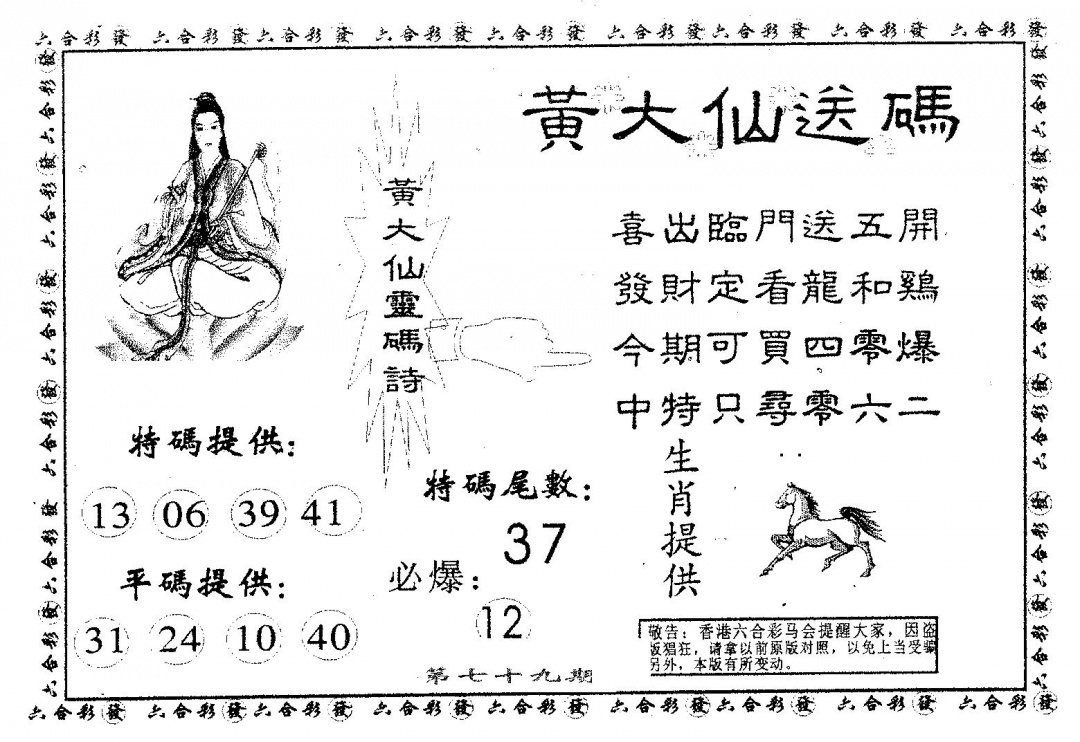 六合彩發 六合彩發 六合彩發 六合彩發 六合彩發 六合彩發 六合彩發 六合彩發 六合彩發
黃大仙送碼
黃大仙靈碼詩
喜出臨門送五開
發財定看龍和鷄
今期可買四零爆
中特只尋零六二
特碼提供：
13 06 39 41
平碼提供：
31 24 10 40
特碼尾數：
37
必爆：
12
第七十九期
生肖提供
敬告：香港六合彩马会提醒大家，因盗
版猖狂，请拿以前原版对照，以免上当受骗
另外，本版有所变动。
六合彩發 六合彩發 六合彩發 六合彩發 六合彩發 六合彩發 六合彩發 六合彩發 六合彩發